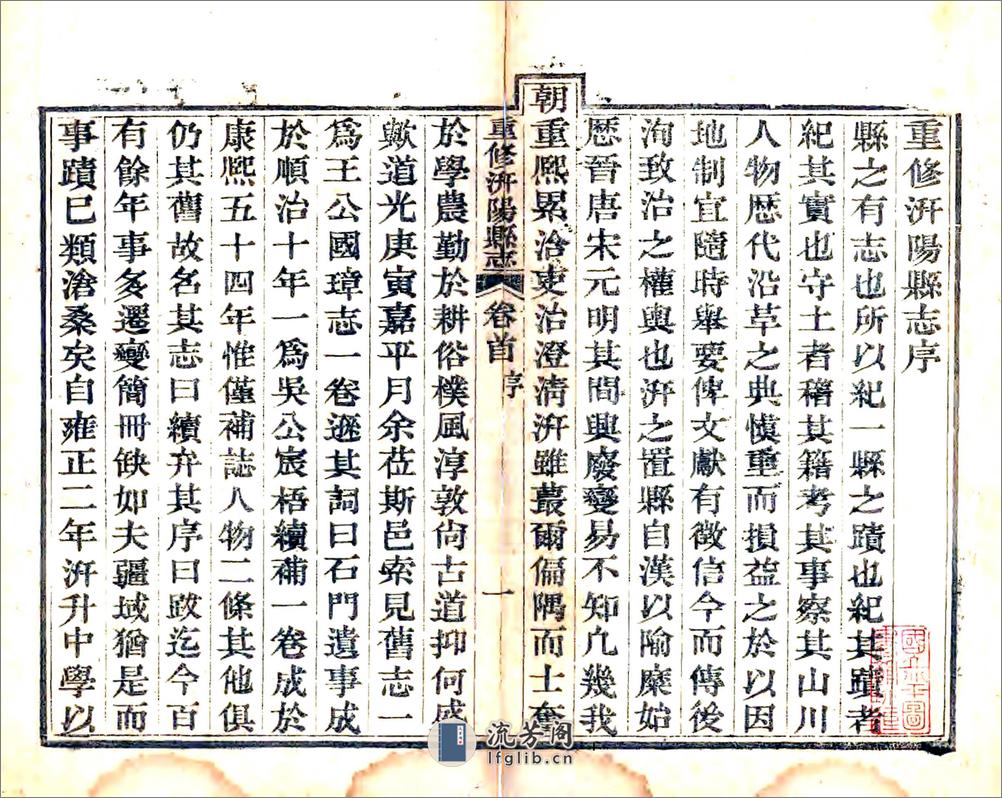 重修汧陽縣志序
縣之有志也所以紀一縣之蹟也紀其蹟者
紀其實也守土者稽其籍考其事察其山川
人物歷代沿革之典慎重而損益之於以因
地制宜隨時舉要俾文獻有徵信今而傳後
洵致治之權輿也汧之置縣自漢以隃麋始
歷晉唐宋元明其間興廢變易不知凢幾我
朝重熙累洽吏治澄清汧雖蕞爾偏隅而士奮
重修汧陽縣志 卷首 序 一
於學農勤於耕俗樸風淳敦尙古道抑何盛
歟道光庚寅嘉平月余莅斯邑索見舊志一
爲王公國瑋志一卷遜其詞曰石門遺事成
於順治十年一爲吳公宸梧續補一卷成於
康熙五十四年惟僅補誌人物二條其他俱
仍其舊故名其志曰續弁其序曰跋迄今百
有餘年事多遷變簡冊缺如夫疆域猶是而
事蹟已類滄桑矣自雍正二年汧升中學以
流芳阁
lfglib.cn